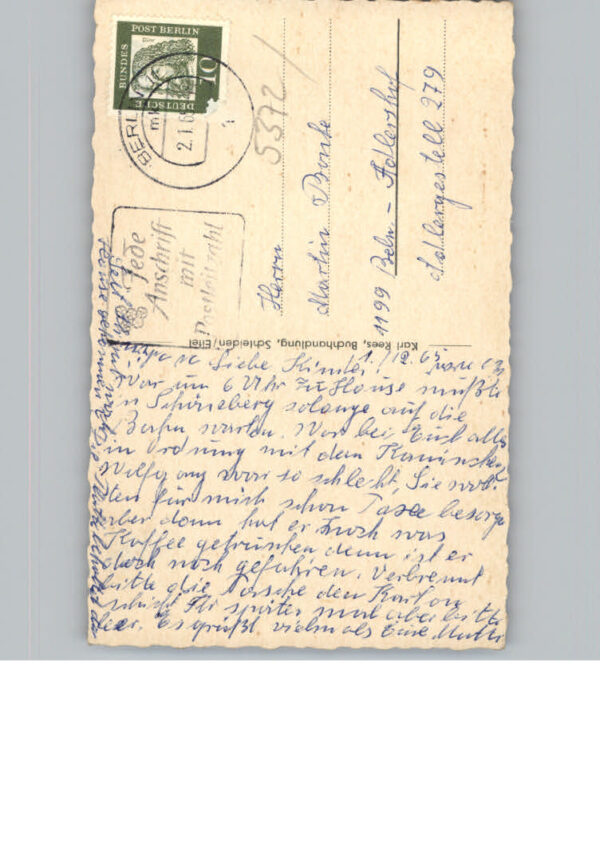 DEUTSCHE
BUNDES
POST BERLIN
10
Dürer
BERLIN
2.1.6
5372
Jede
Anschrift
mit
Postleitzahl
Herrn
Martin
1199 Bln – Adlershof
Adlergestell 279
Karl Rees, Buchhandlung, Schleiden/Eifel
Liebe Kinder! 1./12.65
War um 6 Uhr zu Hause mußte
in Schöneberg solange auf die
Bahn warten. War bei Euch alles
in Ordnung mit dem
Wolfgang war so schlecht, Sie woll-
ten für mich schon Taxe besorgen
aber dann hat er noch was
Kaffee getrunken dann ist er
doch noch gefahren. Verbrennt
bitte die Asche den Karton
schickt Ihr später mal aber bitte
leer. Es grüßt vielmals Eure Mutti